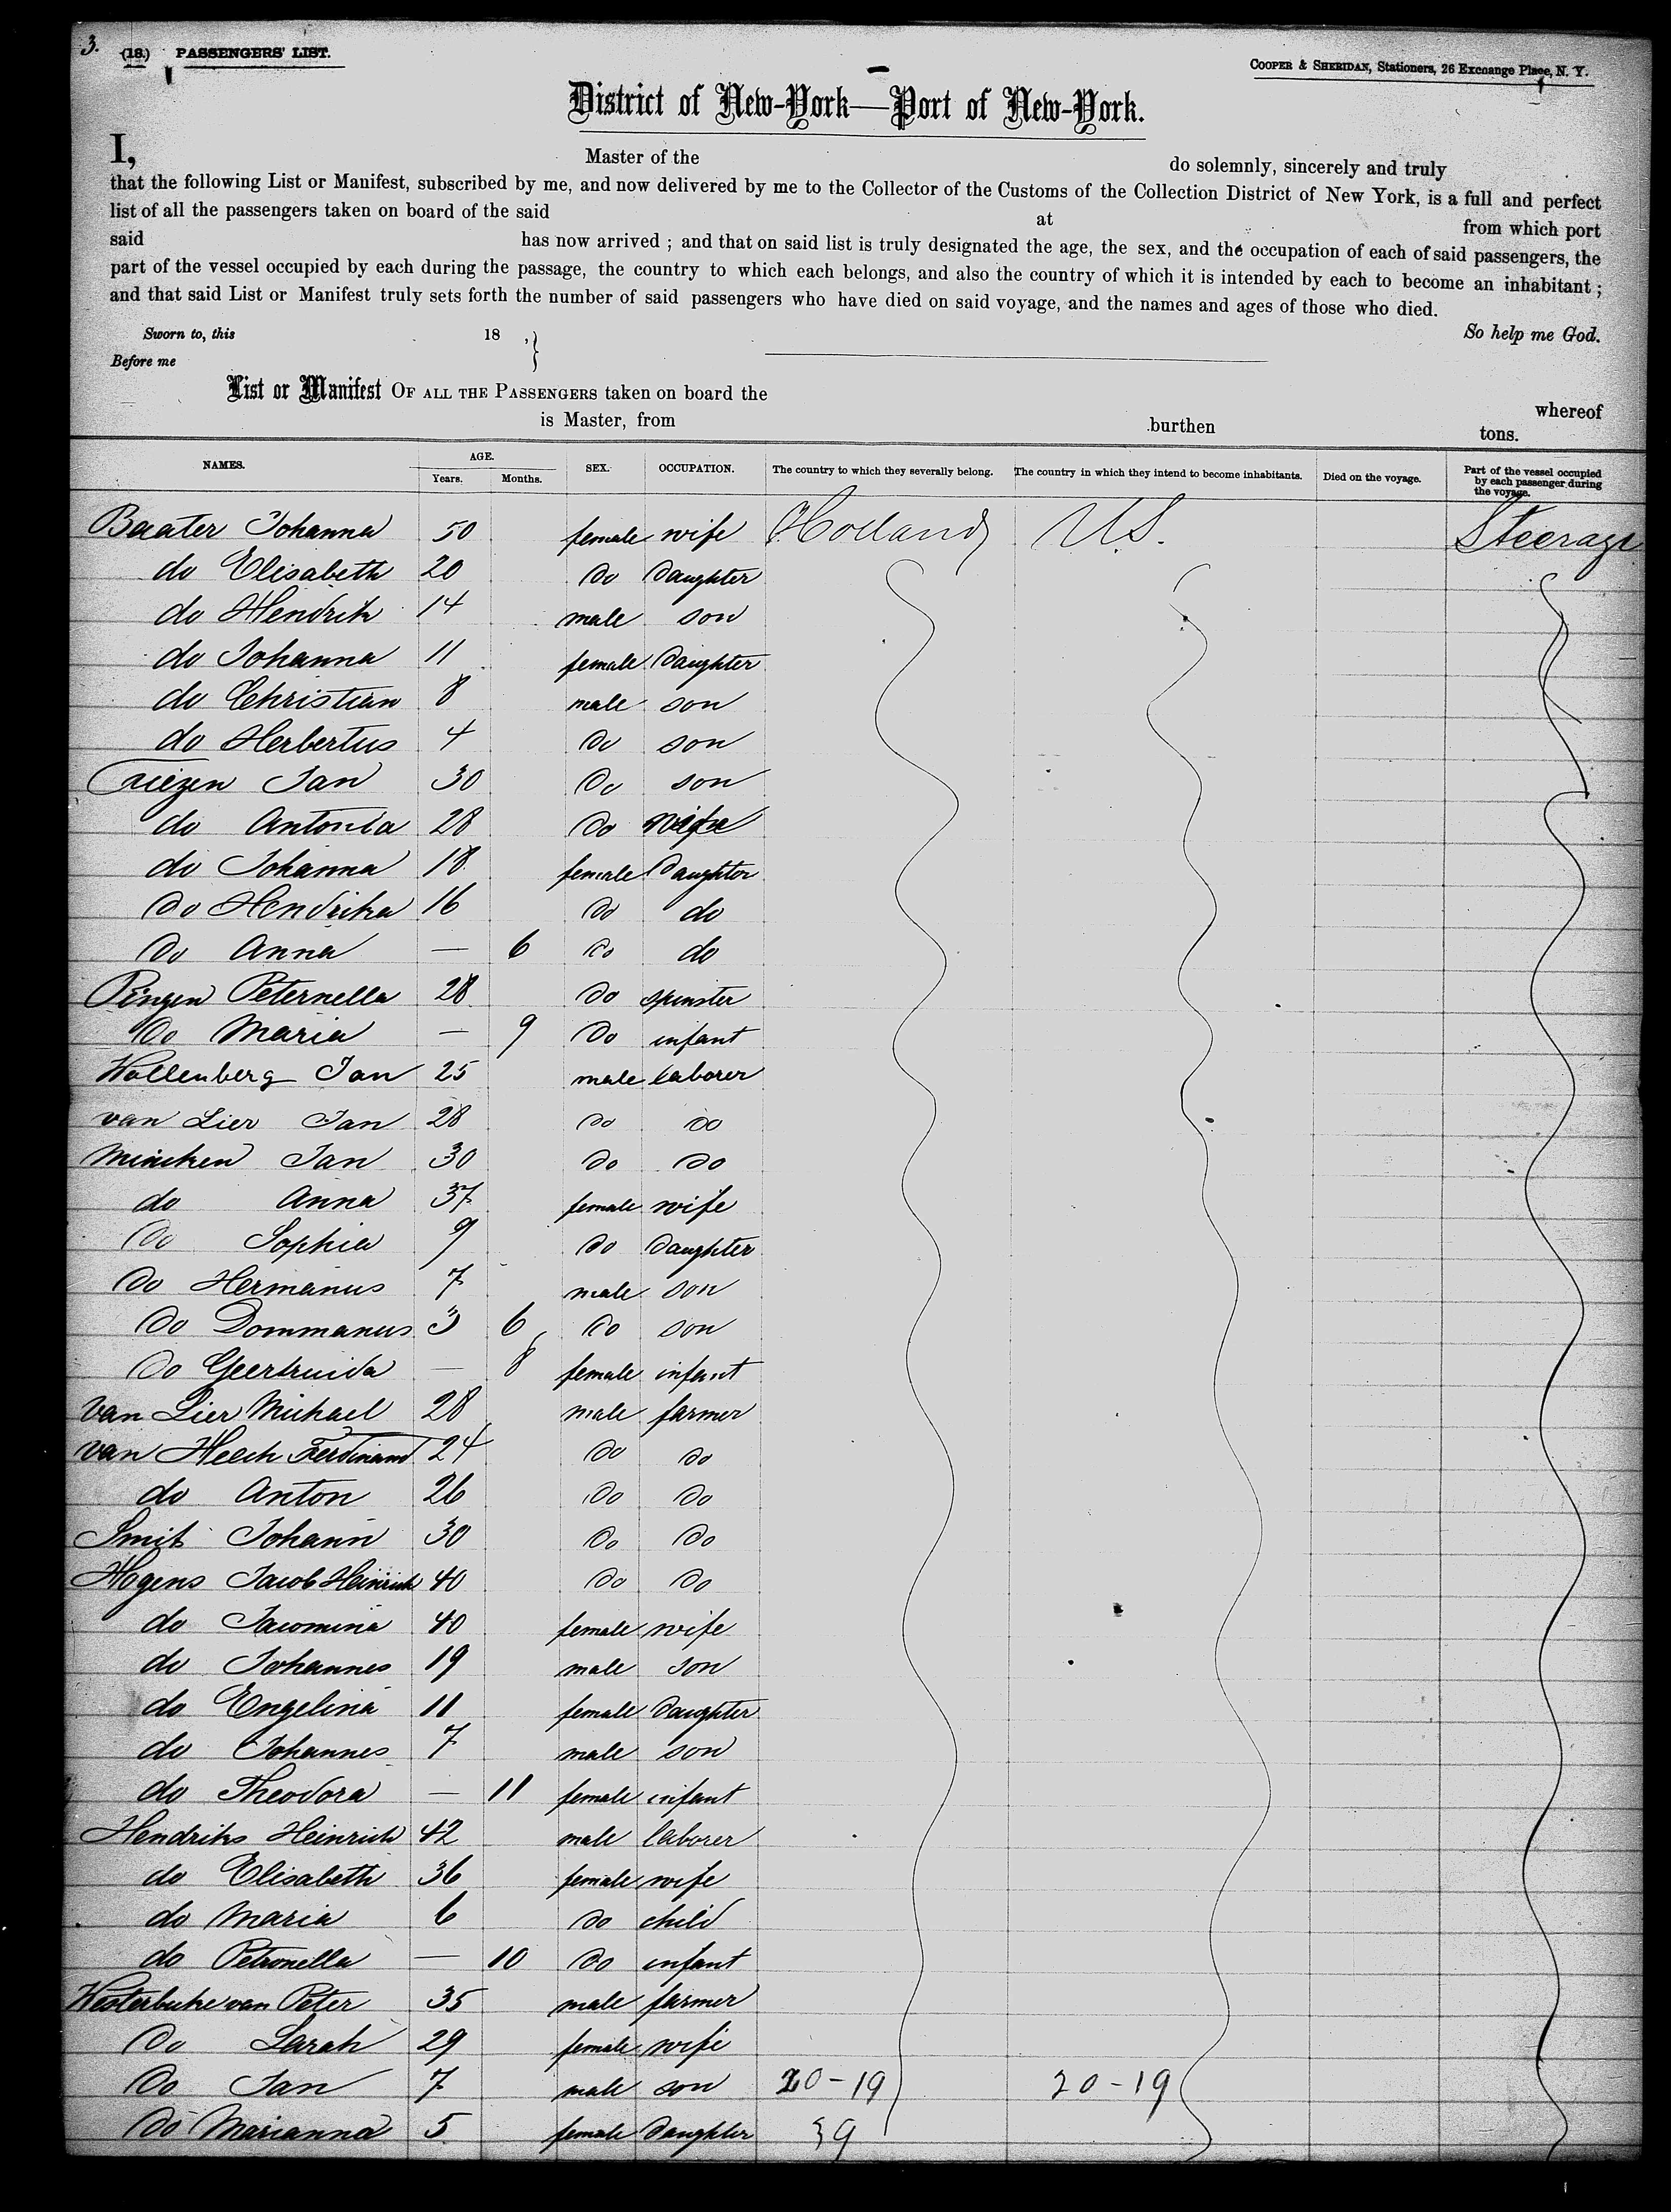 3. (18.) PASSENGERS' LIST.
COOPER & SHERIDAN, Stationers, 26 Exchange Place, N. Y.
District of New-York—Port of New-York.
I, Master of the do solemnly, sincerely and truly
that the following List or Manifest, subscribed by me, and now delivered by me to the Collector of the Customs of the Collection District of New York, is a full and perfect
list of all the passengers taken on board of the said at from which port
said has now arrived ; and that on said list is truly designated the age, the sex, and the occupation of each of said passengers, the
part of the vessel occupied by each during the passage, the country to which each belongs, and also the country of which it is intended by each to become an inhabitant ;
and that said List or Manifest truly sets forth the number of said passengers who have died on said voyage, and the names and ages of those who died.
Sworn to, this 18 , So help me God.
Before me
List or Manifest OF ALL THE PASSENGERS taken on board the whereof
is Master, from burthen tons.
NAMES. AGE. Years. Months. SEX. OCCUPATION. The country to which they severally belong. The country in which they intend to become inhabitants. Died on the voyage. Part of the vessel occupied by each passenger during the voyage.
Baater Johanna 50 female wife Holland U.S. Steerage
do Elisabeth 20 do daughter
do Hendrik 14 male son
do Johanna 11 female daughter
do Christian 8 male son
do Herbertus 4 do son
Jan 30 do son
do Antonia 28 do wife
do Johanna 18 female daughter
do Hendrika 16 do do
do Anna — 6 do do
Pingen Peternella 28 do spinster
do Maria — 9 do infant
Wollenberg Jan 25 male laborer
van Lier Jan 28 do do
Jan 30 do do
do Anna 37 female wife
do Sophia 9 do daughter
do Hermanus 7 male son
do Dommanus 3 6 do son
do Geertruida — 8 female infant
van Lier Michael 28 male farmer
van Ferdinand 24 do do
do Anton 26 do do
Smit Johann 30 do do
Hogens Jacob Heinrich 40 do do
do Jacomina 40 female wife
do Johannes 19 male son
do Engelina 11 female daughter
do Johannes 7 male son
do Theodora — 11 female infant
Hendriks Heinrich 42 male laborer
do Elisabeth 36 female wife
do Maria 6 do child
do Petronella — 10 do infant
van Peter 35 male farmer
do Sarah 29 female wife
do Jan 7 male son 20-19 20-19
do Marianna 5 female daughter 39